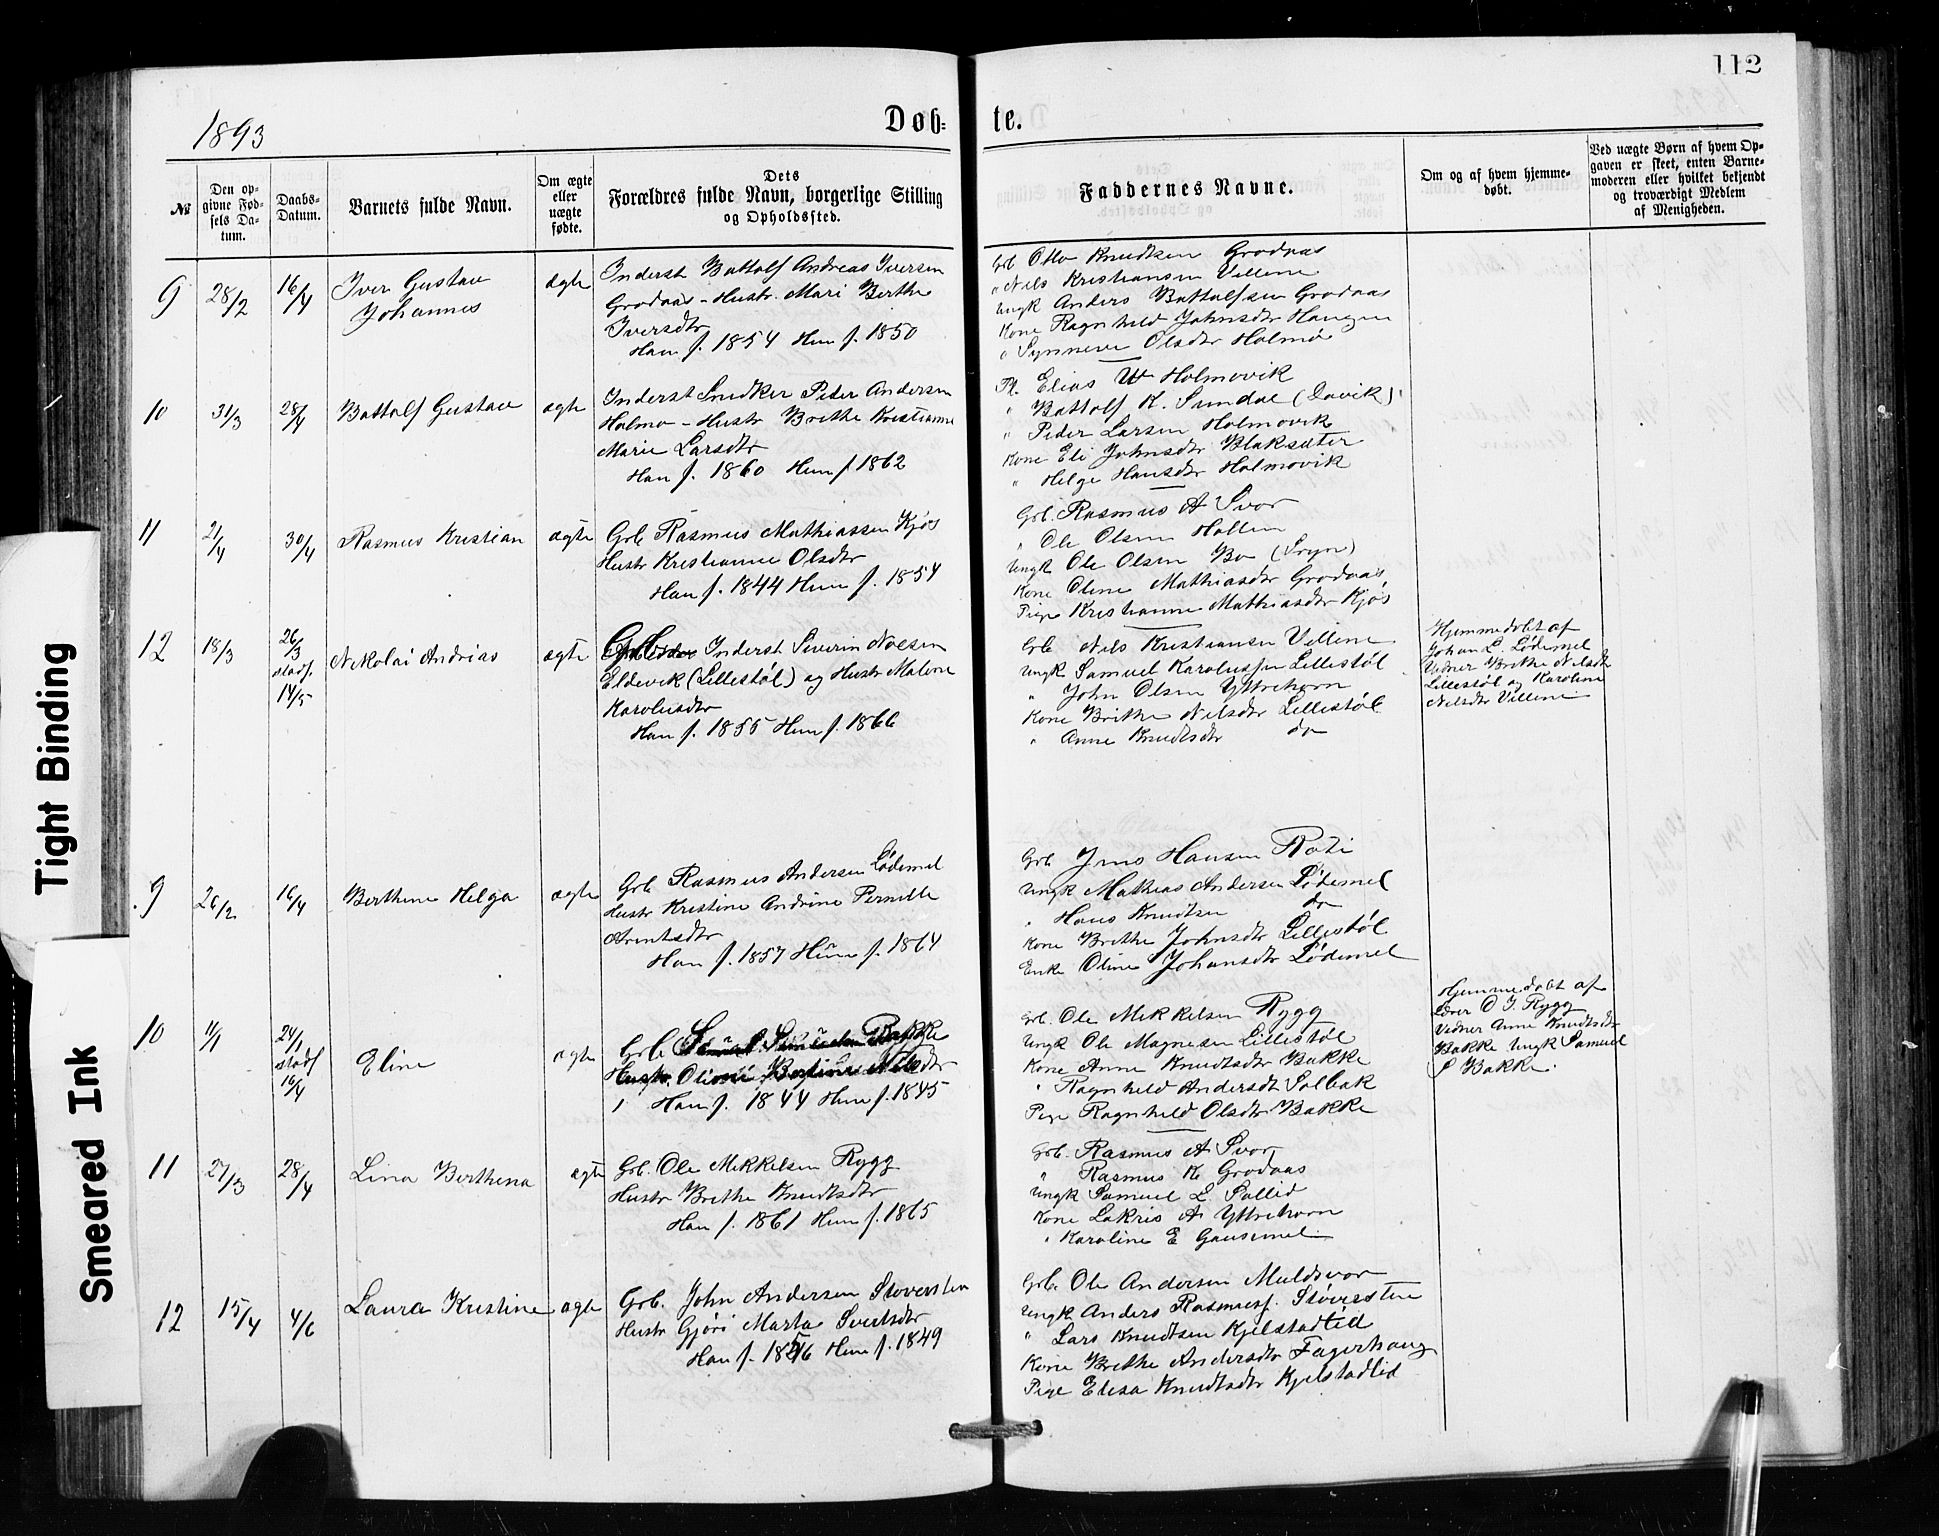 112
1893
Døb-te.
№
Den op-
givne Fød-
sels Da-
tum.
Daabs-
Datum.
Barnets fulde Navn.
Om ægte
eller
uægte
fødte.
Dets
Forældres fulde Navn, borgerlige Stilling
og Opholdssted.
Faddernes Navne.
Om og af hvem hjemme-
døbt.
Ved uægte Børn af hvem Op-
gaven er skeet, enten Barne-
moderen eller hvilket bekjendt
og troværdigt Medlem
af Menigheden.
9 28/2 16/4 Iver Gustav
Johannes
ægte
Inderst Bottolf Andreas Iversen
Grodaas - Hustr. Mari Berthe
Iversdtr
Han f. 1854 Hun f. 1850
Grb Otto Knudtsen Grodaas
" Nils Kristiansen Vellene
Ungk Anders Bottolfsen Grodaas
Kone Ragnhild Johnsdtr Haugen
" Synneve Olsdtr Holmø
10 31/3 28/4 Bottolf Gustav ægte
Inderst Snedker Peder Andersen
Holmø - Hustr Brithe Kristianne
Marie Larsdtr
Han f. 1860 Hun f 1862
Pl. Elias W Holmovik
" Bottolf K. Sundal (Davik)
" Peder Larsen Holmovik
Kone Eli Johnsdtr Blaksæter
" Helge Hansdtr Holmovik
11 21/4 30/4 Rasmus Kristian ægte
Grb Rasmus Mathiassen Kjøs
Hustr Kristianne Olsdtr
Han f. 1844 Hun f. 1854
Grb. Rasmus A Svor
" Ole Olsen Hollen
Ungk Ole Olsen Bo (Stryn)
Kone Oline Mathiasdtr Grodaas
Pige Kristianne Mathiasdtr Kjøs
12 18/3 26/3
stadf.
14/5
Nikolai Andrias ægte
Inderst Severin Noesen
Eldevik (Lillestøl) og Hustr Malene
Karolusdtr
Han f. 1855 Hun f. 1866
Grb Nils Kristiansen Vellene
Ungk Samuel Karolussen Lillestøl
" John Olsen Yttrehorn
Kone Brithe Nilsdtr Lillestøl
" Anne Knudtsdtr do
Hjemmedøbt af
Johan L. Lødemel
Vidner Brithe Nilsdtr
Lillestøl og Karoline
Nilsdtr Vellene
9 26/2 16/4 Berthine Helga ægte
Grb Rasmus Andersen Lødemel
Hustr Kristine Andrine Pernille
Arentsdtr
Han f. 1857 Hun f. 1864
Grb Jens Hansen Roti
Ungk Mathias Andersen Lødemel
" Hans Knudtsen do
Kone Brithe Johnsdtr Lillestøl
Enke Oline Johansdtr Lødemel
10 11/1 24/1
stadf
16/4
Eline ægte
Grb Samuel Samuelsen Bakke
Hustr. Olivie Bertine Nilsdtr
Han f. 1844 Hun f. 1845
Grb. Ole Mekkelsen Rygg
Ungk Ole Magnesen Lillestøl
Kone Anne Knudtsdtr Bakke
" Ragnhild Andersdt Solbak
Pige Ragnhild Olsdtr Bakke
Hjemmedøbt af
Lærer O J Rygg
Vidner Anne Knudtsdtr
Bakke Ungk Samuel
S Bakke.
11 27/3 28/4 Lina Berthina ægte
Grb. Ole Mekkelsen Rygg
Hustr Brithe Knudtsdtr
Han f. 1861 Hun f. 1865
Grb. Rasmus A Svor
" Rasmus K Grodaas
Ungk Samuel L. Sollid
Kone Lakris A Yttrehorn
" Karoline E Gausemel
12 15/4 4/6 Laura Kristine ægte
Grb. John Andersen Støversten
Hustr Gjøri Marta Sivertsdtr
Han f. 1846 Hun f. 1849
Grb. Ole Andersen Muldsvor
Ungk Anders Rasmusf. Støversten
" Lars Knudtsen Kjelstadlid
Kone Brithe Andersdtr Fagerhaug
Pige Elisa Knudtsdtr Kjelstadlid
Tight Binding
Smeared Ink